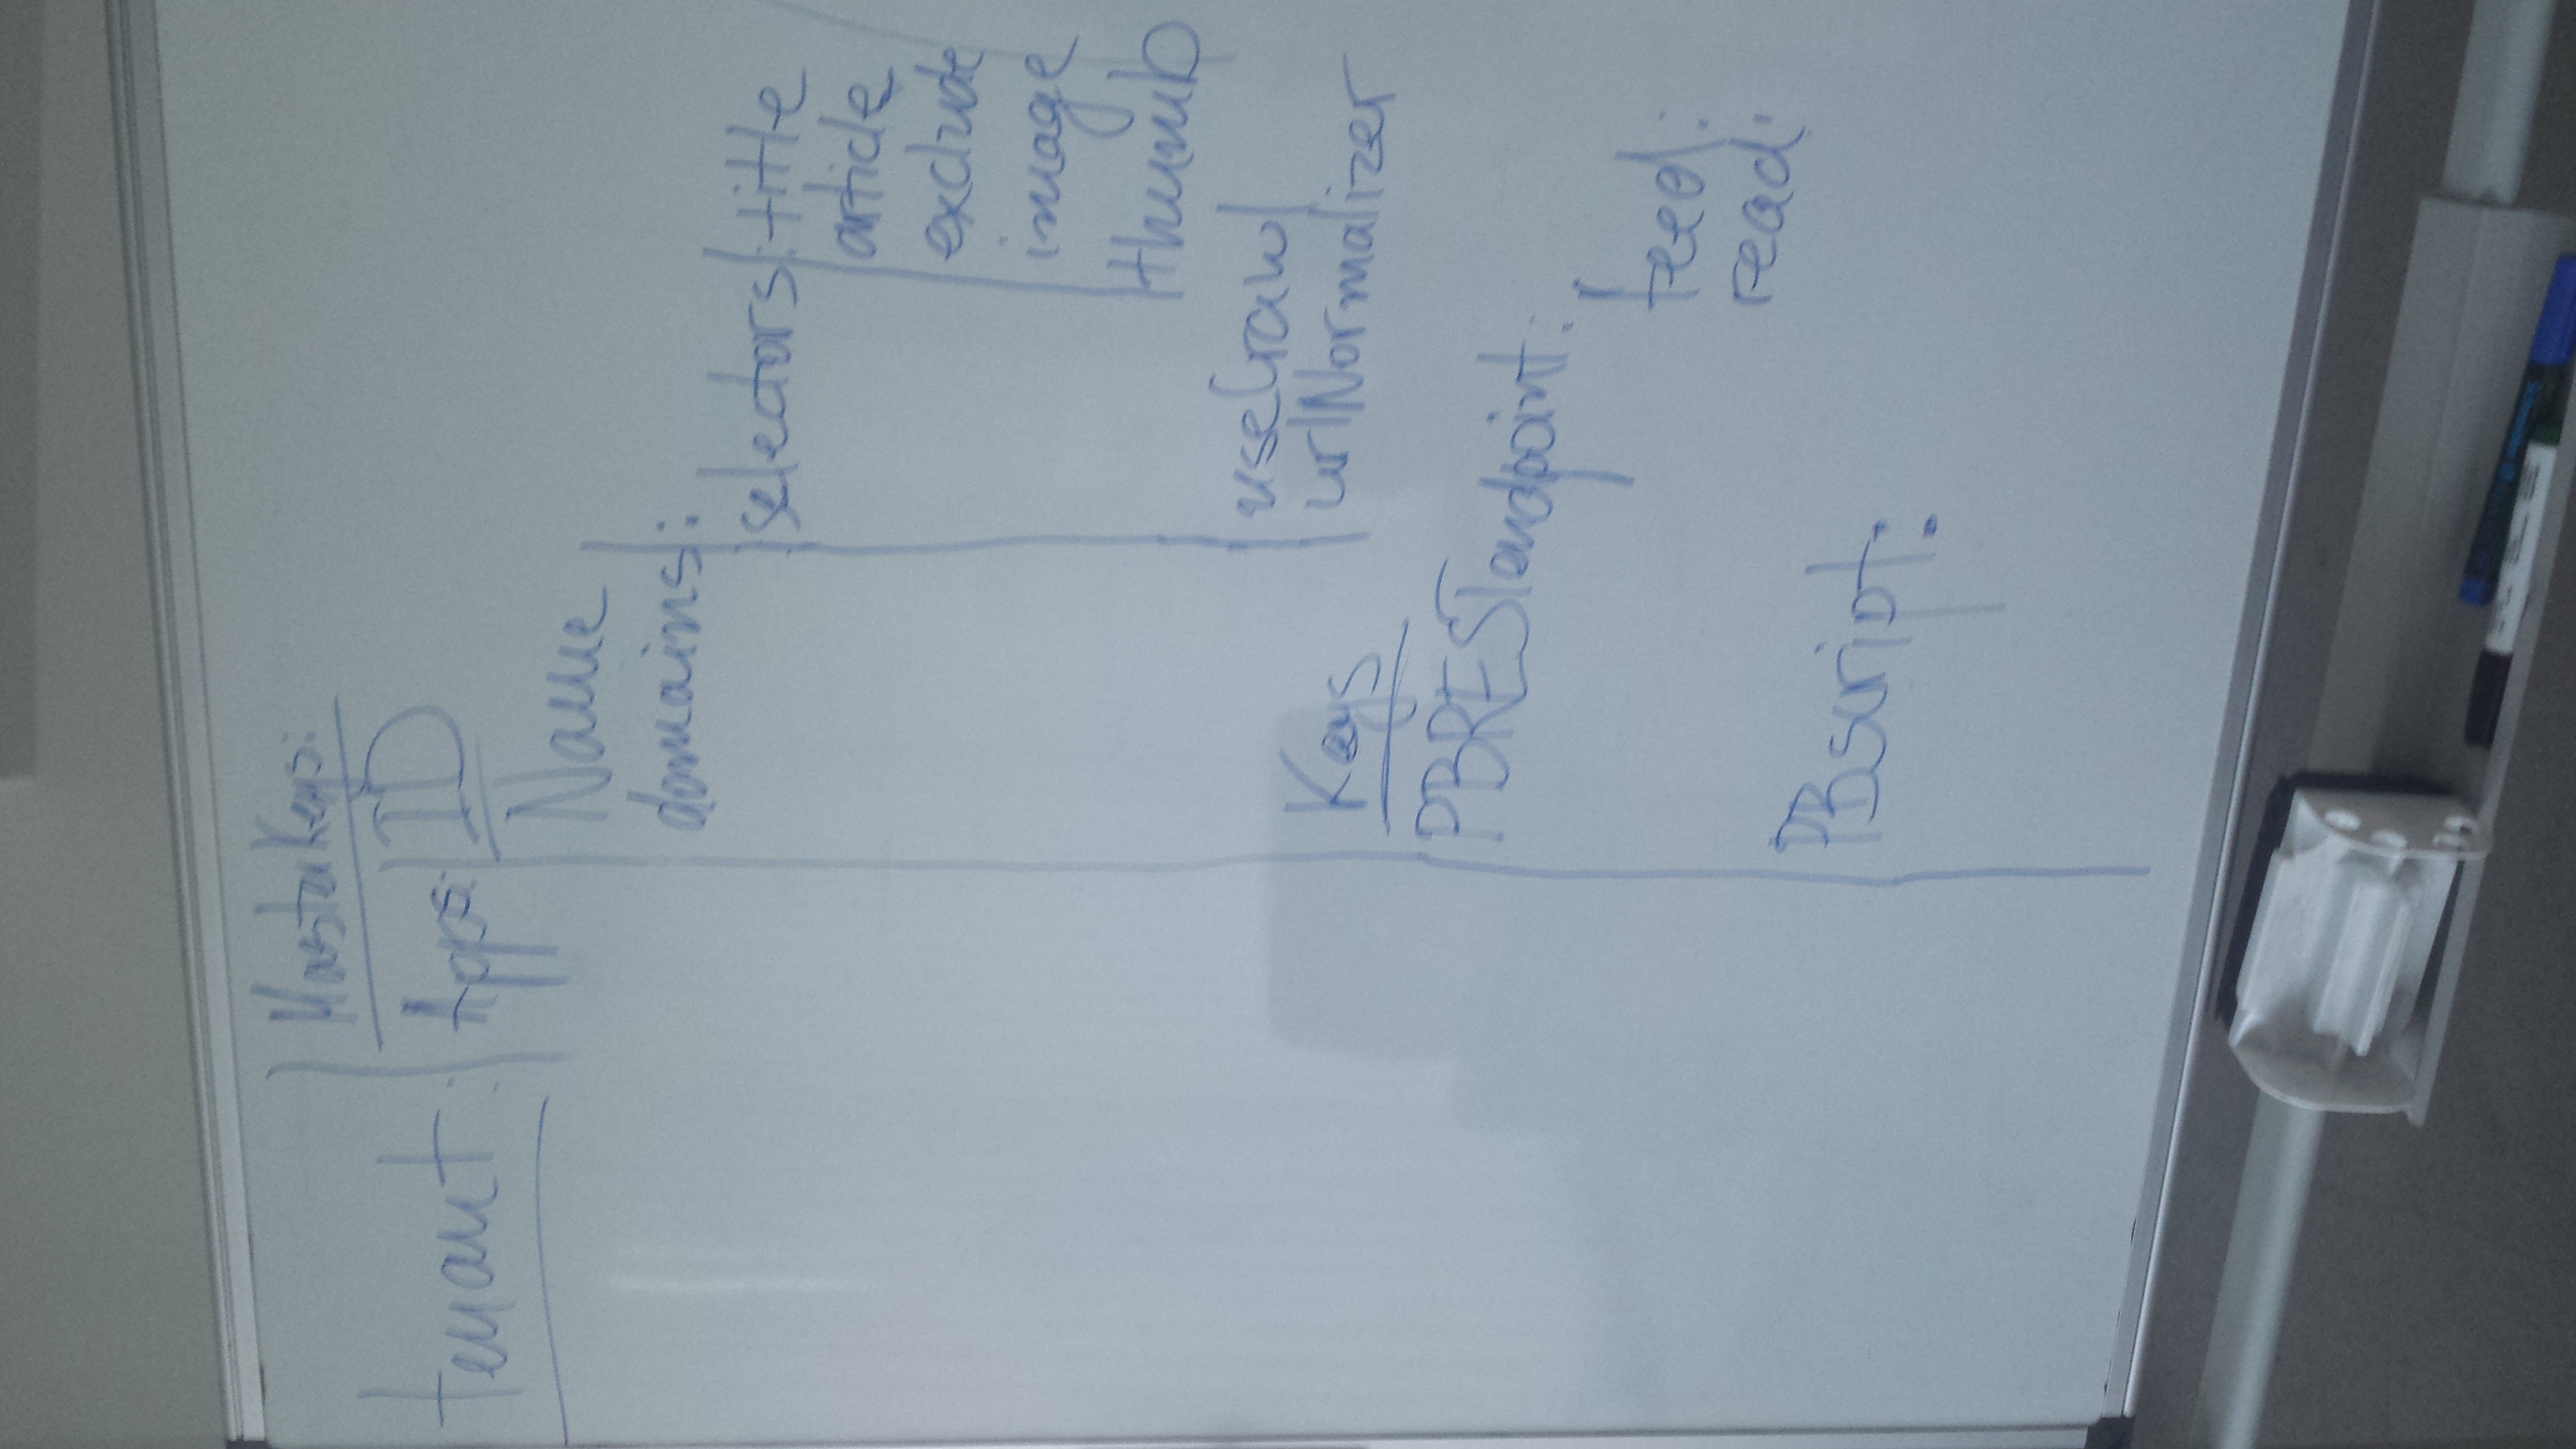 MasterKeys:
tenant: Apps: ID
Name
domains:
selectors: title
article
exclude
image
thumb
useCrawl
urlNormalizer
Keys
PBRESTendpoint:
feed:
read:
PBscript: